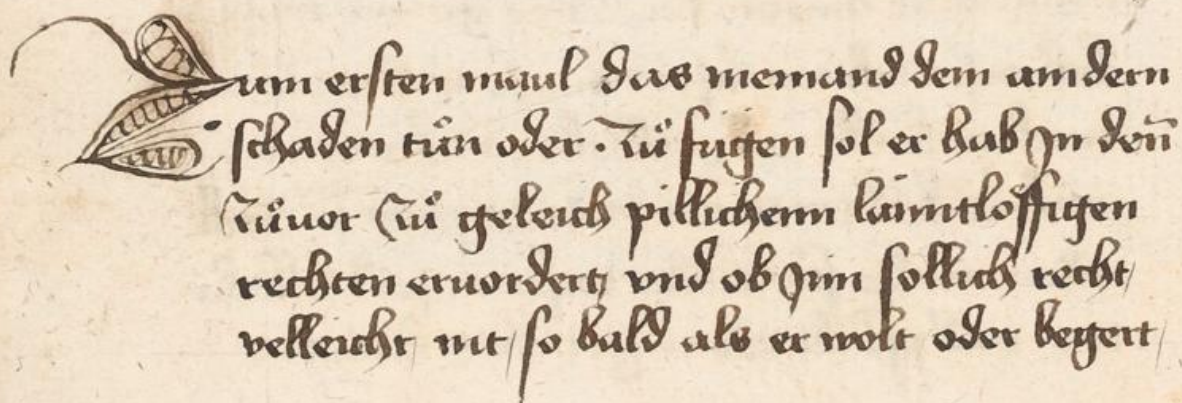 Zum ersten maul das niemand dem anndern
schaden tůn oder · zů fůgen sol er hab Jn den̄
zůuor zů geleich pillichenn lanntlöffigen
rechten eruordert, vnd ob Jm sollich recht,
velleicht, nit, so bald als er wolt oder begert,